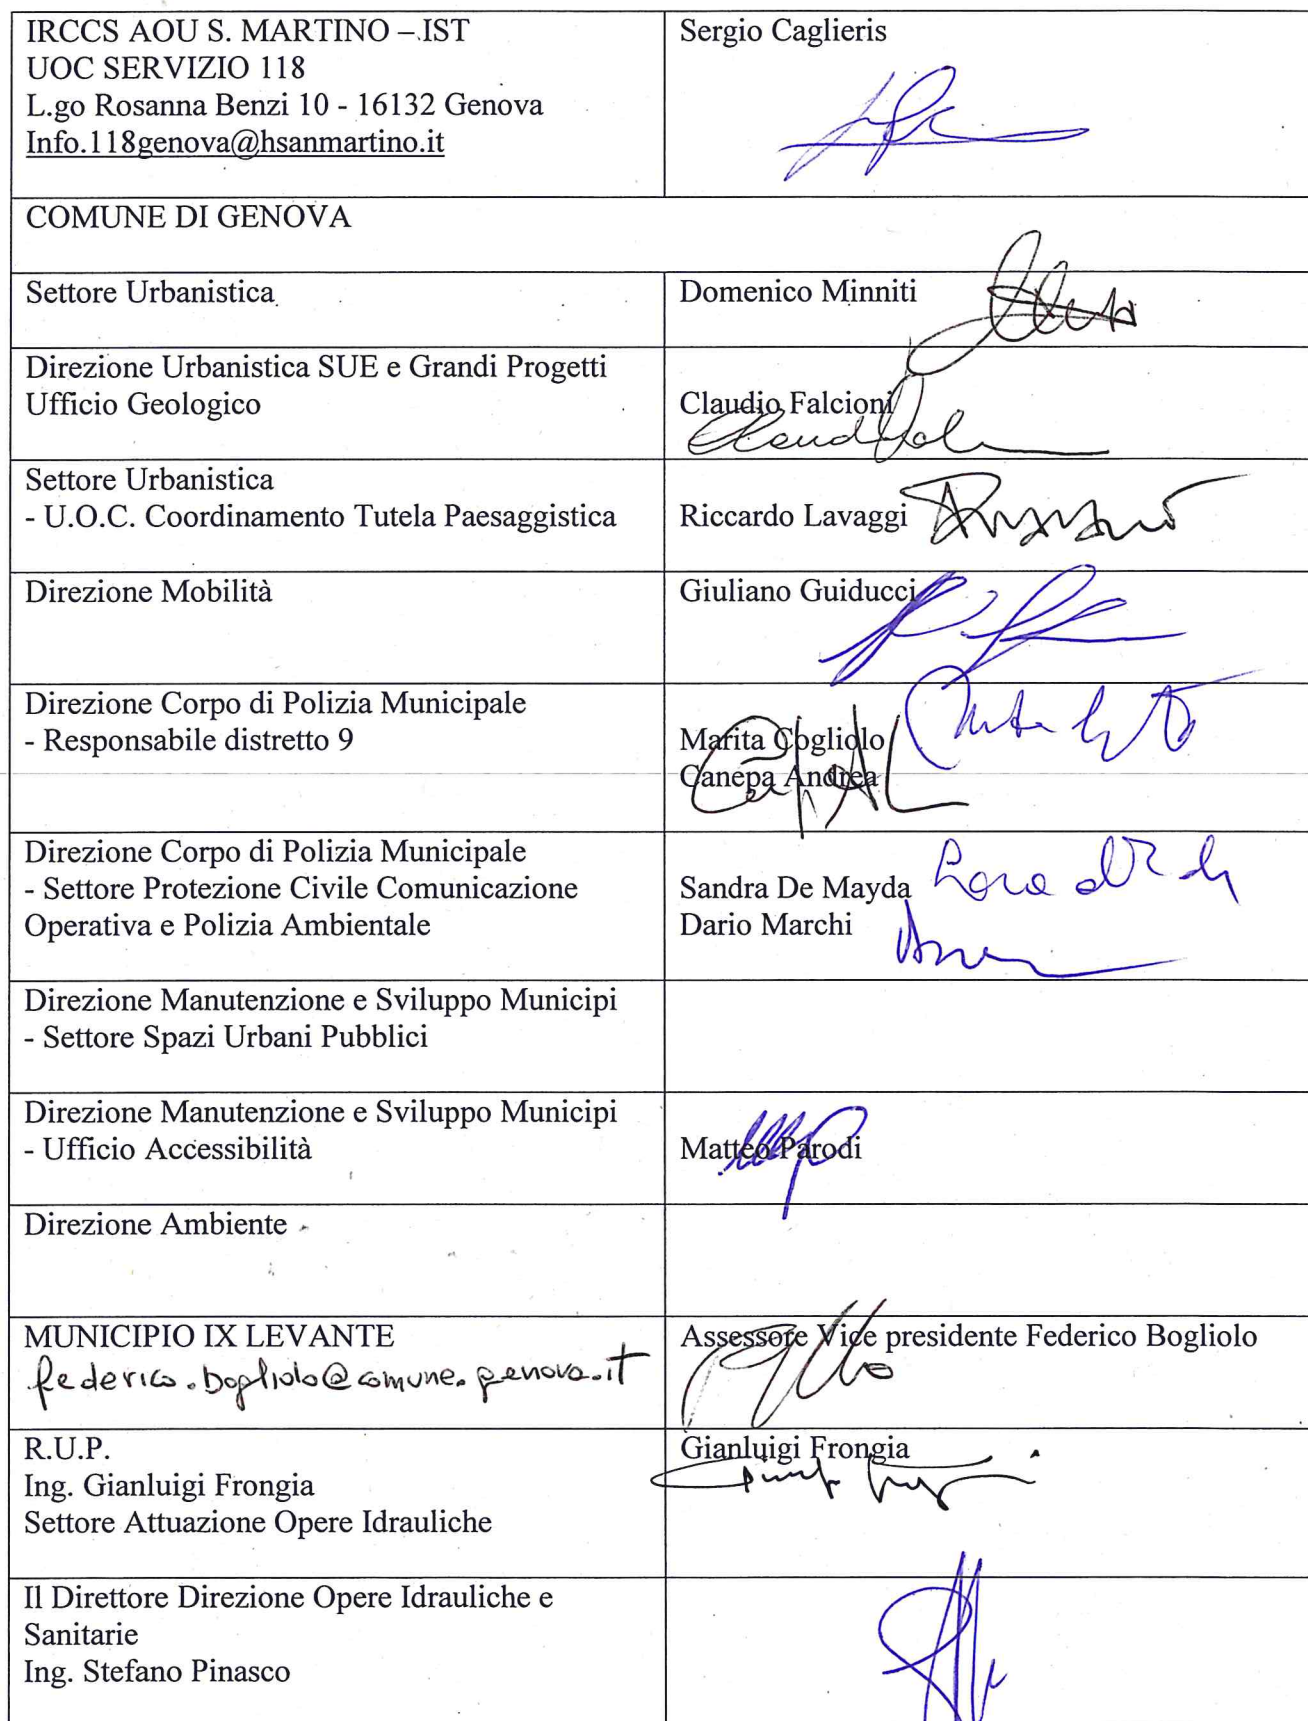 IRCCS AOU S. MARTINO – IST
UOC SERVIZIO 118
L.go Rosanna Benzi 10 - 16132 Genova
Info.118genova@hsanmartino.it
Sergio Caglieris
COMUNE DI GENOVA
Settore Urbanistica
Domenico Minniti
Direzione Urbanistica SUE e Grandi Progetti
Ufficio Geologico
Claudio Falcioni
Settore Urbanistica
- U.O.C. Coordinamento Tutela Paesaggistica
Riccardo Lavaggi
Direzione Mobilità
Giuliano Guiducci
Direzione Corpo di Polizia Municipale
- Responsabile distretto 9
Marita Cogliolo
Canepa Andrea
Direzione Corpo di Polizia Municipale
- Settore Protezione Civile Comunicazione
Operativa e Polizia Ambientale
Sandra De Mayda
Dario Marchi
Direzione Manutenzione e Sviluppo Municipi
- Settore Spazi Urbani Pubblici
Direzione Manutenzione e Sviluppo Municipi
- Ufficio Accessibilità
Matteo Parodi
Direzione Ambiente
MUNICIPIO IX LEVANTE
federico.bogliolo@comune.genova.it
Assessore Vice presidente Federico Bogliolo
R.U.P.
Ing. Gianluigi Frongia
Settore Attuazione Opere Idrauliche
Gianluigi Frongia
Il Direttore Direzione Opere Idrauliche e
Sanitarie
Ing. Stefano Pinasco